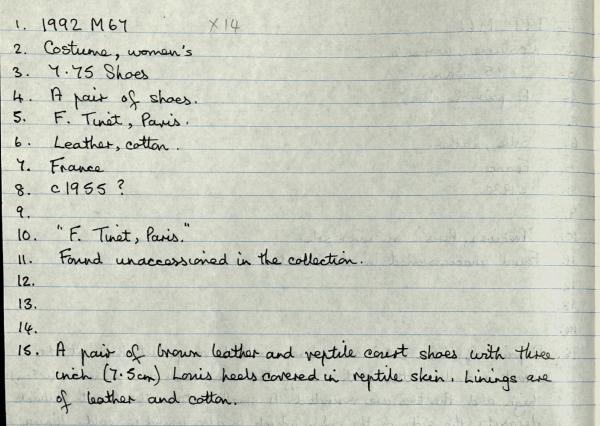 1. 1992 M67 X14
2. Costume, women's
3. 7.75 Shoes
4. A pair of shoes.
5. F. Tinet, Paris.
6. Leather, cotton.
7. France
8. c1955 ?
9.
10. "F. Tinet, Paris."
11. Found unaccessioned in the collection.
12.
13.
14.
15. A pair of brown leather and reptile court shoes with three
inch (7.5cm) Louis heels covered in reptile skin. Linings are
of leather and cotton.